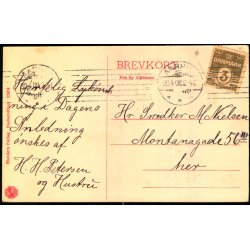 BREVKORT
Kun for Adressen
DANMARK
3
Hjertelig Lykønsk
ning i Dagens
Anledning
ønskes af
H. H. Petersen
og Hustru
Hr. Snedker M. Nielsen
Montanagade 56 III
her